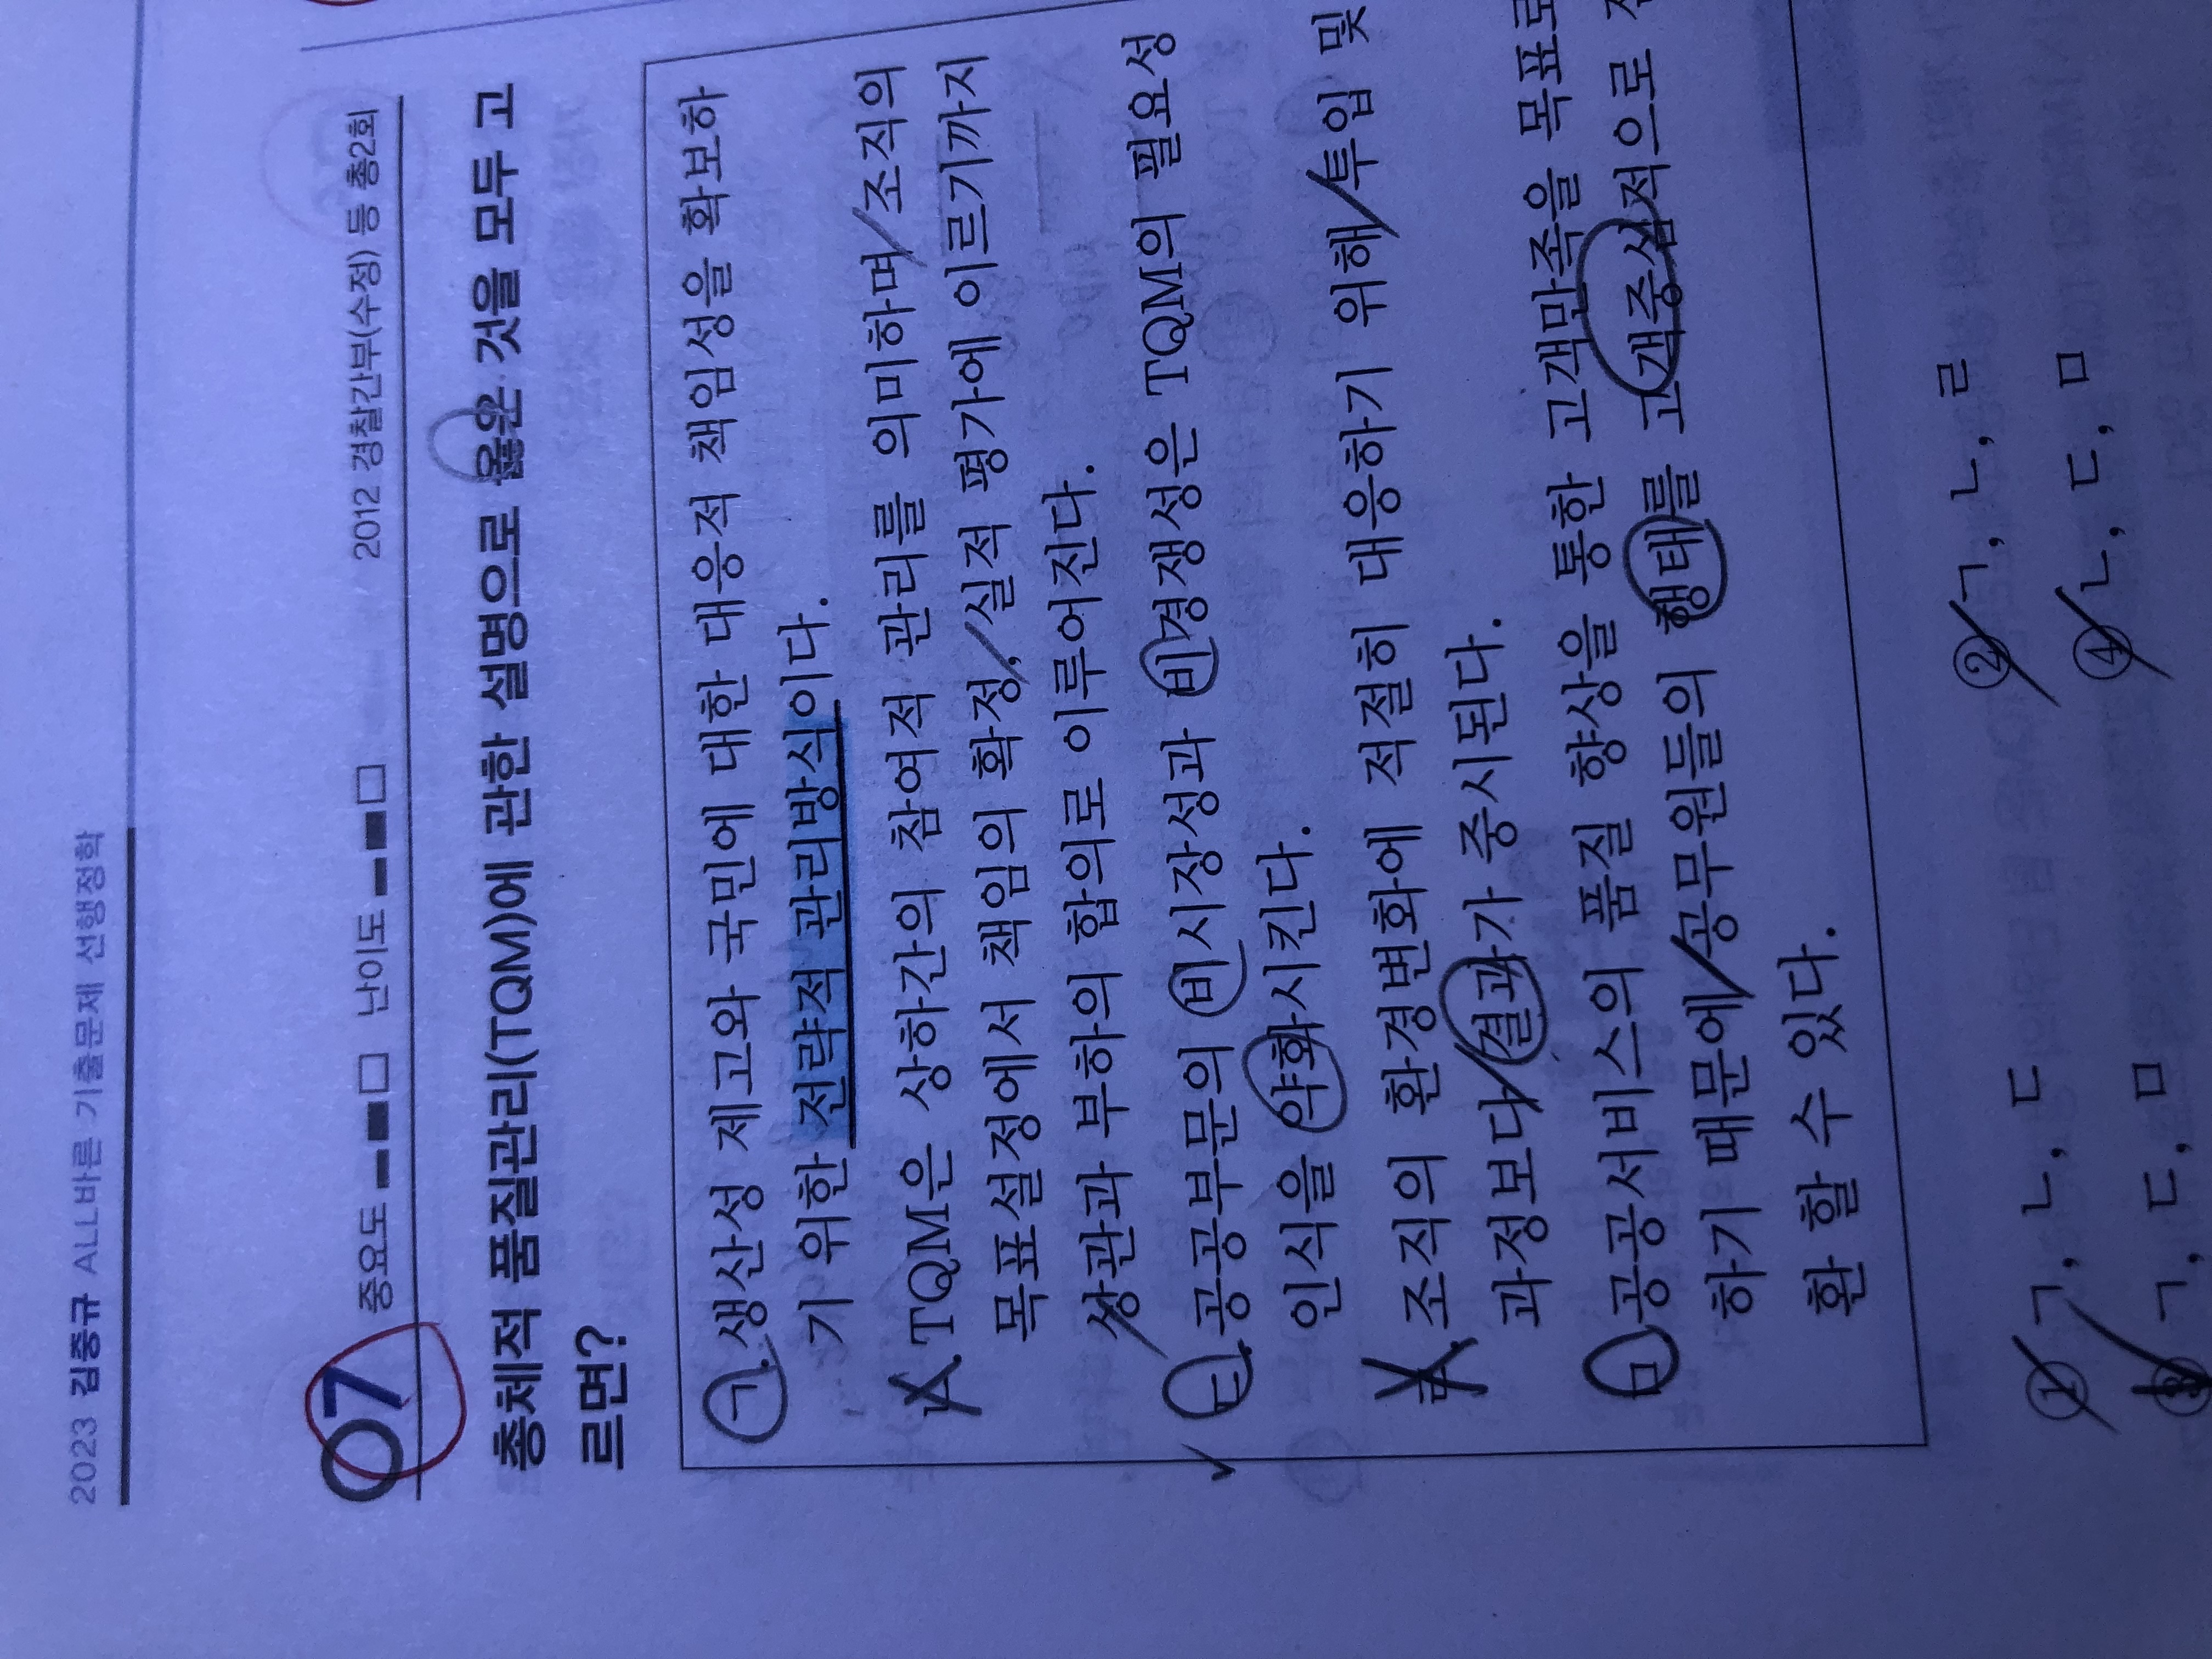 2023 김중규 ALL바른 기출문제 선행정학
07 중요도 난이도 2012 경찰간부(수정) 등 총2회
총체적 품질관리(TQM)에 관한 설명으로 옳은 것을 모두 고
르면?
ㄱ. 생산성 제고와 국민에 대한 대응적 책임성을 확보하
기 위한 전략적 관리방식이다.
ㄴ. TQM은 상하간의 참여적 관리를 의미하며 조직의
목표설정에서 책임의 확정, 실적 평가에 이르기까지
상관과 부하의 합의로 이루어진다.
ㄷ. 공공부문의 비시장성과 비경쟁성은 TQM의 필요성
인식을 약화시킨다.
ㄹ. 조직의 환경변화에 적절히 대응하기 위해 투입 및
과정보다 결과가 중시된다.
ㅁ. 공공서비스의 품질 향상을 통한 고객만족을 목표로
하기 때문에 공무원들의 행태를 고객중심적으로
환 할 수 있다.
① ㄱ, ㄴ, ㄷ ② ㄱ, ㄴ, ㄹ
③ ㄱ, ㄷ, ㅁ ④ ㄴ, ㄷ, ㅁ